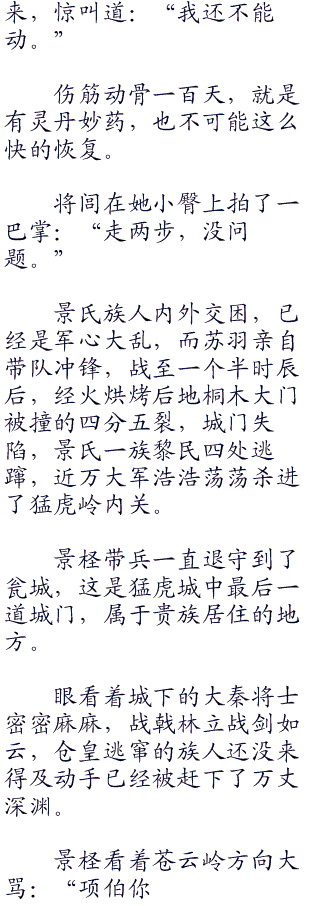 来，惊叫道：“我还不能
动。”
伤筋动骨一百天，就是
有灵丹妙药，也不可能这么
快的恢复。
将闾在她小臀上拍了一
巴掌：“走两步，没问
题。”
景氏族人内外交困，已
经是军心大乱，而苏羽亲自
带队冲锋，战至一个半时辰
后，经火烘烤后地桐木大门
被撞的四分五裂，城门失
陷，景氏一族黎民四处逃
蹿，近万大军浩浩荡荡杀进
了猛虎岭内关。
景柽带兵一直退守到了
瓮城，这是猛虎城中最后一
道城门，属于贵族居住的地
方。
眼看着城下的大秦将士
密密麻麻，战戟林立战剑如
云，仓皇逃窜的族人还没来
得及动手已经被赶下了万丈
深渊。
景柽看着苍云岭方向大
骂：“项伯你